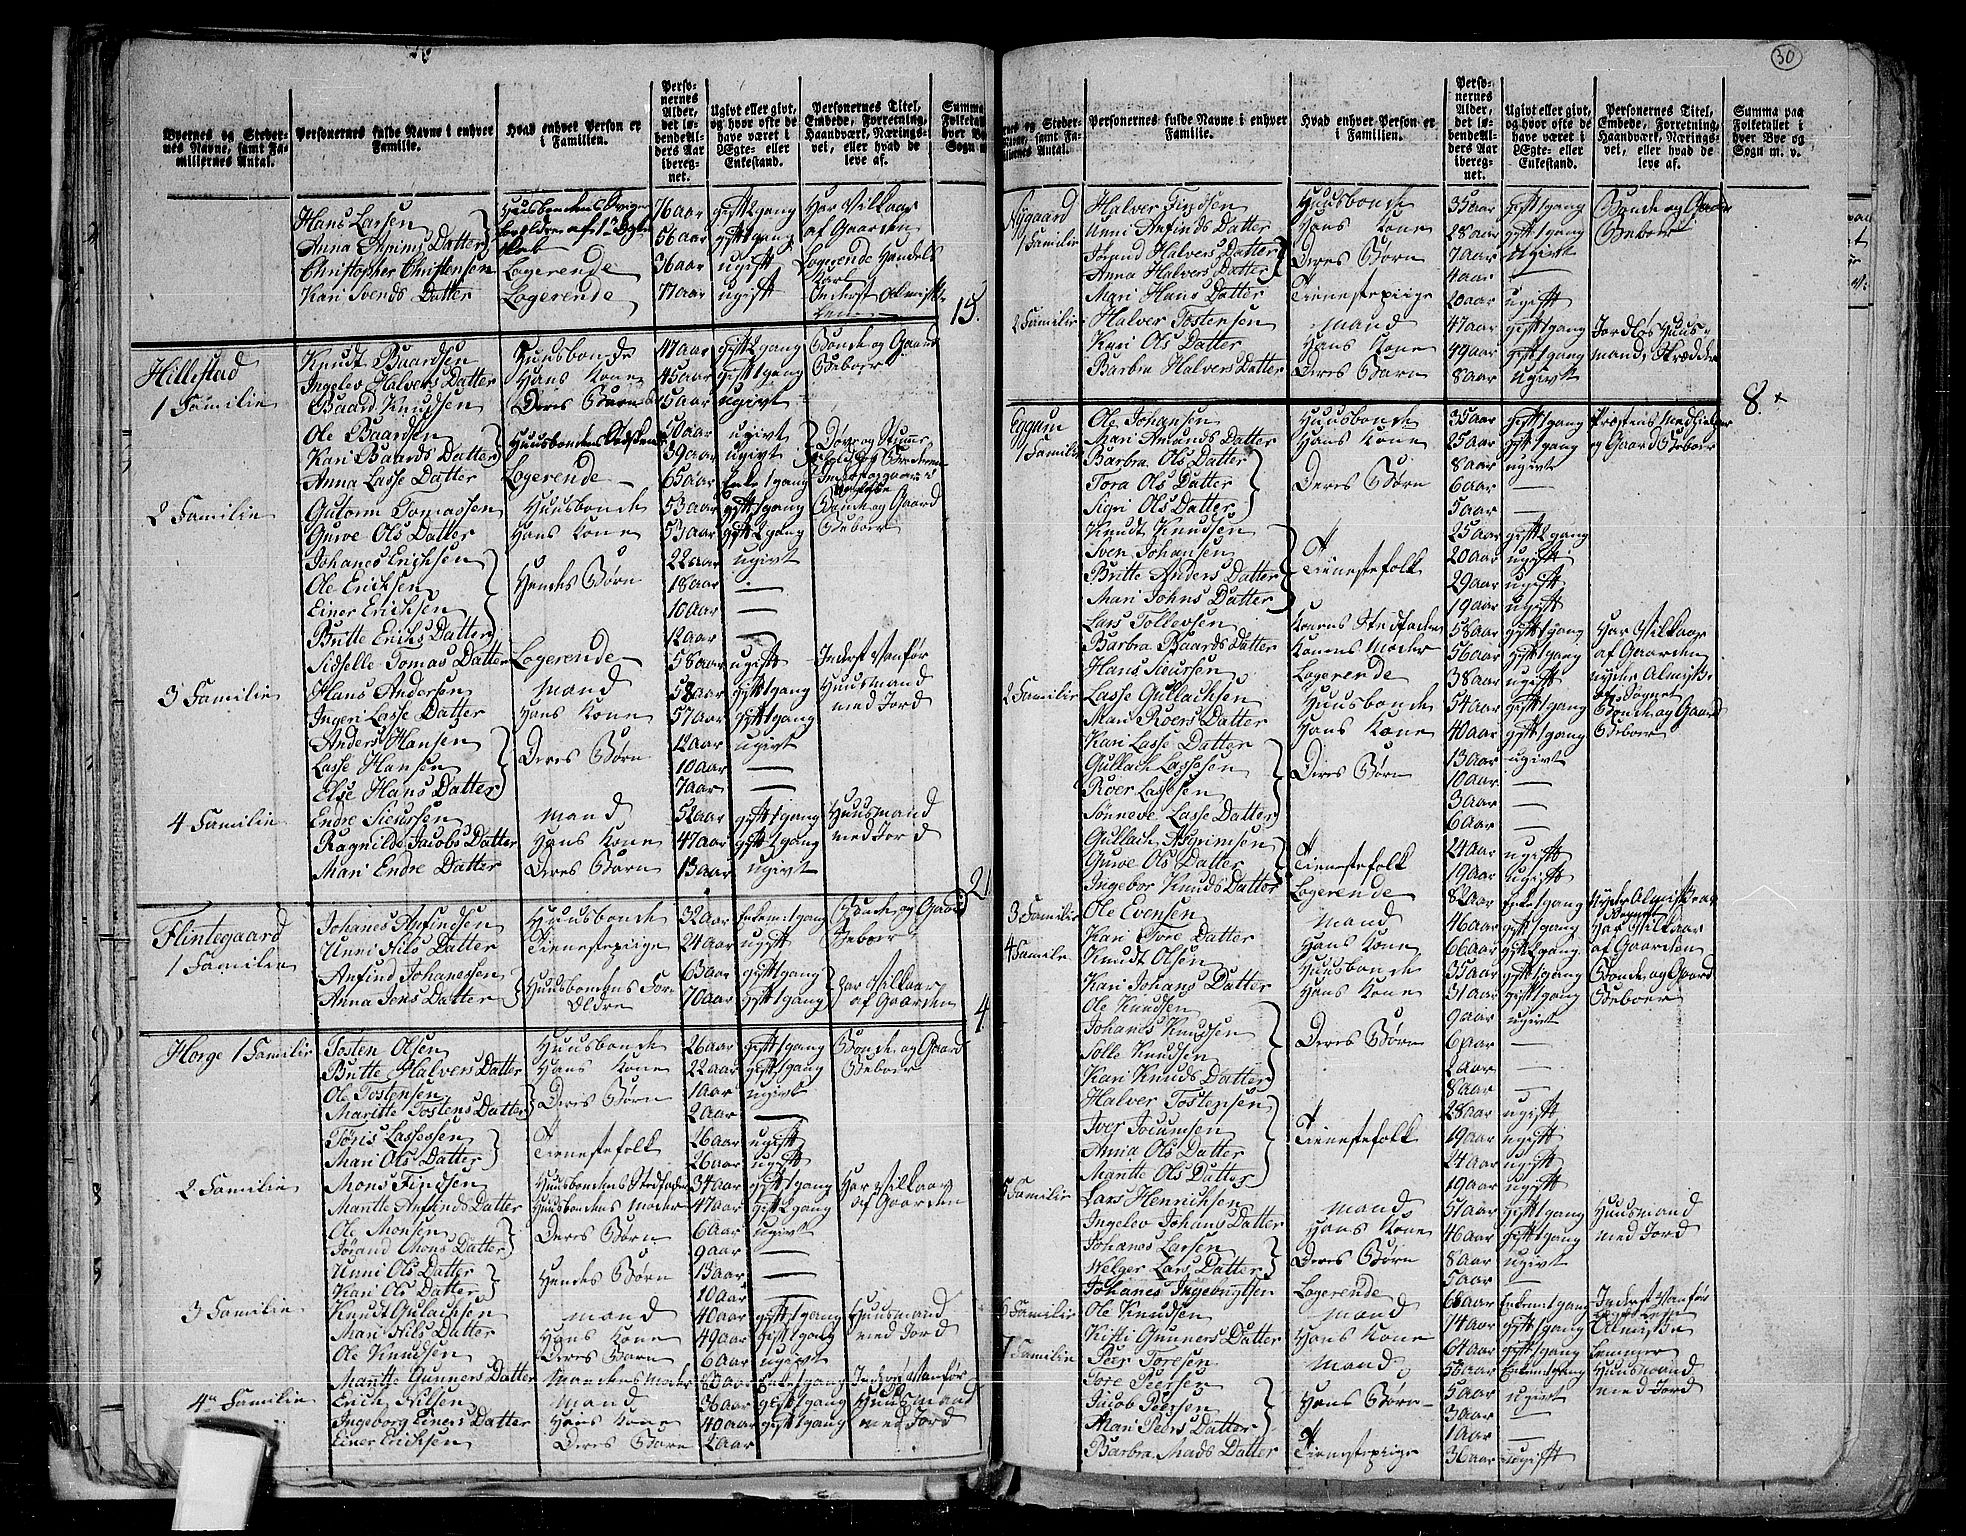 Byernes og Stedernes Navne, samt Familiernes Antal. | Personernes fulde Navne i enhver Familie. | Hvad enhver Person er i Familien. | Personernes Alder, det løbende Alders Aar iberegnet. | Ugivt eller givt, og hvor ofte de have været i Ægte- eller Enkestand. | Personernes Titel, Embede, Forretning, Haandværk, Næringsvei, eller hvad de leve af. | Summa Folketal hver By Sogn m
Hans Larsen | Huusbondens Sviger | 76 aar | gift 2 gang | Har Vilkaar
Anna Asrims Datter | forældre af 1ste Ægte skab | 56 aar | gift 1 gang | af Gaarden
Christopher Christensen | Logerende | 36 aar | ugift | Logerende Handels Karl
Kari Svends Datter | Logerende | 77 aar | ugift | Inderst Almisse | 15.
Hillestad 1 Familie | Knudt Baardsen | Huusbonde | 47 aar | gift 2 gang | Bonde og Gaard
Ingelev Halvers Datter | Hans Kone | 45 aar | gift 1 gang | Beboer
Baard Knudsen | Deres Barn | 15 aar | ugivt
Ole Baardsen | Huusbondens Sødskende | 50 aar | ugivt | Døv og Stum
Kari Baards Datter | 39 aar | ugivt
Anna Lasse Datter | Logerende | 65 aar | Enke 1 gang
2 Familie | Gutorm Tomassen | Huusbonde | 53 aar | gift 1 gang | Bonde og Gaard
Gurve Ols Datter | Hans Kone | 53 aar | gift 2 gang | Beboer
Johanes Erichsen | 22 aar | ugivt
Ole Erichsen | Hendes Børn | 18 aar | —
Einer Erichsen | 10 aar | —
Britte Erichs Datter | 12 aar | —
Sidselle Tomas Datter | Logerende | 58 aar | ugift | Inderst Vanfør
3 Familie | Hans Andersen | Mand | 58 aar | gift 1 gang | Huusmand
Ingeri Lasse Datter | Hans Kone | 57 aar | gift 1 gang | med Jord
Anders Hansen | 12 aar | ugivt
Lasse Hansen | Deres Børn | 10 aar | —
Else Hans Datter | 7 aar | —
4 Familie | Endre Sieurssen | Mand | 52 aar | gift 1 gang | Huusmand
Ragnilde Jacobs Datter | Hans Kone | 47 aar | gift 2 gang | med Jord
Mari Endre Datter | Deres Barn | 13 aar | ugivt | 21
Flintegaard 1 Familie | Johanes Anfindsen | Huusbonde | 32 aar | Enkem 1 gang | Bonde og Gaard
Unni Nils Datter | Tienestepiige | 24 aar | ugift | Beboer
Anfind Johanessen | Huusbondens For | 63 aar | gift 1 gang | Har Vilkaar
Anna Jens Datter | Ældre | 70 aar | gift 1 gang | af Gaarden | 4.
Horge 1 Familie | Tosten Olsen | Huusbonde | 26 aar | gift 1 gang | Bonde og Gaard
Britte Halvers Datter | Hans Kone | 22 aar | gift 1 gang | Beboer
Ole Tostensen | Deres Børn | 1 aar | ugivt
Maritte Tostens Datter | 2 aar | —
Tøris Lassesen | Tienestefolk | 26 aar | ugift
Mari Ols Datter | 26 aar | ugift
2 Familie | Mons Findsen | Huusbondens Stedfader | 34 aar | gift 1 gang | Har Vilkaar
Mantte Anfinds Datter | Huusbondens Moder | 47 aar | gift 2 gang | af Gaarden
Ole Monsen | Deres Børn | 6 aar | ugivt
Jørand Mons Datter | 9 aar | —
Unni Ols Datter | Hendes Børn | 13 aar | —
Kari Ols Datter | 10 aar | —
3 Familie | Knudt Gulachsen | Mand | 40 aar | gift 1 gang | Huusmand
Mari Nils Datter | Hans Kone | 49 aar | gift 1 gang | med Jord
Ole Knudsen | Deres Barn | 6 aar | ugivt
Mantte Gunners Datter | Mandens Moder | Enke 1 gang | Inderst Vanfør
4de Familie | Erich Nilsen | Mand | 36 aar | gift 1 gang | Huusmand
Ingeborg Einers Datter | Hans Kone | 40 aar | gift 1 gang | med Jord
Einer Erichsen | Deres Barn | 2 aar
30
Personernes fulde Navne i enhver Familie. | Hvad enhver Person er i Familien. | Personernes Alder, det løbende Alders Aar iberegnet. | Ugivt eller givt, og hvor ofte de have været i Ægte- eller Enkestand. | Personernes Titel, Embede, Forretning, Haandværk, Næringsvei, eller hvad de leve af. | Summa paa Folketallet i hver Bye og Sogn m. v.
Nygaard 1 Familie | Halver Findsen | Huusbonde | 35 aar | gift 1 gang | Bonde og Gaard
Unni Anfinds Datter | Hans Kone | 28 aar | gift 1 gang | Beboer
Jørand Halvers Datter | Deres Børn | 7 aar | ugivt
Anna Halvers Datter | 4 aar | —
Mari Hans Datter | Tienestepiige | 20 aar | ugift
2 Familie | Halver Tostensen | Mand | 47 aar | gift 1 gang | Jordløs Huus-
Kari Ols Datter | Hans Kone | 49 aar | gift 1 gang | mand, Skrædder
Barbra Halvers Datter | Deres Barn | 8 aar | ugivt | 8.
Eggum 1 Familie | Ole Johansen | Huusbonde | 35 aar | gift 1 gang | Prøstens Medhielper
Mari Amunds Datter | Hans Kone | 25 aar | gift 1 gang | og Gaard Beboer
Barbra Ols Datter | 8 aar | ugivt
Tora Ols Datter | Deres Børn | 6 aar | —
Sigri Ols Datter | 5 aar | —
Knudt Knudsen | 25 aar | gift 2 gang
Sven Johansen | Tienestefolk | 20 aar | ugift
Britte Anders Datter | 29 aar | ugift
Mari Johns Datter | 19 aar | ugift
Lars Tollevsen | Konens Stedfader | 58 aar | gift 1 gang | Har Vilkaar
Barbra Baards Datter | Konens Moder | 56 aar | gift 2 gang | af Gaarden
Hans Sieursen | Logerende | 38 aar | ugift | nyder Almisse af Sognet
2 Familie | Lasse Gullachsen | Huusbonde | 54 aar | gift 1 gang | Bonde og Gaard
Mari Roers Datter | Hans Kone | 40 aar | gift 1 gang | Beboer
Kari Lasse Datter | 13 aar | ugivt
Gullach Lassesen | Deres Børn | 10 aar | —
Roer Lassesen | 3 aar | —
Sønneve Lasse Datter | 6 aar | —
Gullach Asgrimsen | Tienestefolk | 24 aar | ugift
Gurve Ols Datter | 19 aar | ugift
Ingebor Knuds Datter | Logerende | 82 aar | Enke 1 gang | Nyder Almisse av Sognet
3 Familie | Ole Evensen | Mand | 46 aar | gift 1 gang | Har Vilkaar
Kari Tore Datter | Hans Kone | 66 aar | gift 2 gang | af Gaarden
4 Familie | Knudt Olsen | Huusbonde | 35 aar | gift 1 gang | Bonde og Gaard
Kari Johans Datter | Hans Kone | 31 aar | gift 1 gang | Beboer
Ole Knudsen | 9 aar | ugivt
Johanes Knudsen | Deres Børn | 6 aar | —
Solle Knudsen | 2 aar | —
Kari Knuds Datter | 8 aar | —
Halver Tostensen | 28 aar | ugift
Iver Joeumsen | Tienestefolk | 19 aar | ugift
Anna Ols Datter | 24 aar | ugift
Mantte Ols Datter | 19 aar | ugift
5 Familie | Lars Henrichsen | Mand | 51 aar | gift 1 gang | Huusmand
Ingelev Johans Datter | Hans Kone | 46 aar | gift 1 gang | med Jord
Johanes Larsen | Deres Børn | 8 aar | ugivt
Welger Lars Datter | 5 aar | —
Johanes Ingebrigtsen | Logerende | 68 aar | Enkem 1 gang | Inderst Vanfør
6 Familie | Ole Knudsen | Mand | 74 aar | gift 1 gang | Almisse
Kisti Gunners Datter | Hans Kone | 64 aar | gift 1 gang | Lemmer
7 Familie | Peer Toresen | Mand | 58 aar | Enkem 1 gang | Huusmand
Tore Peersen | 5 aar | ugivt | med Jord
Jacob Peersen | Hans Børn | 3 aar | —
Mari Peers Datter | 1 aar | —
Barbra Mads Datter | Tienestepiige | 36 aar | ugift